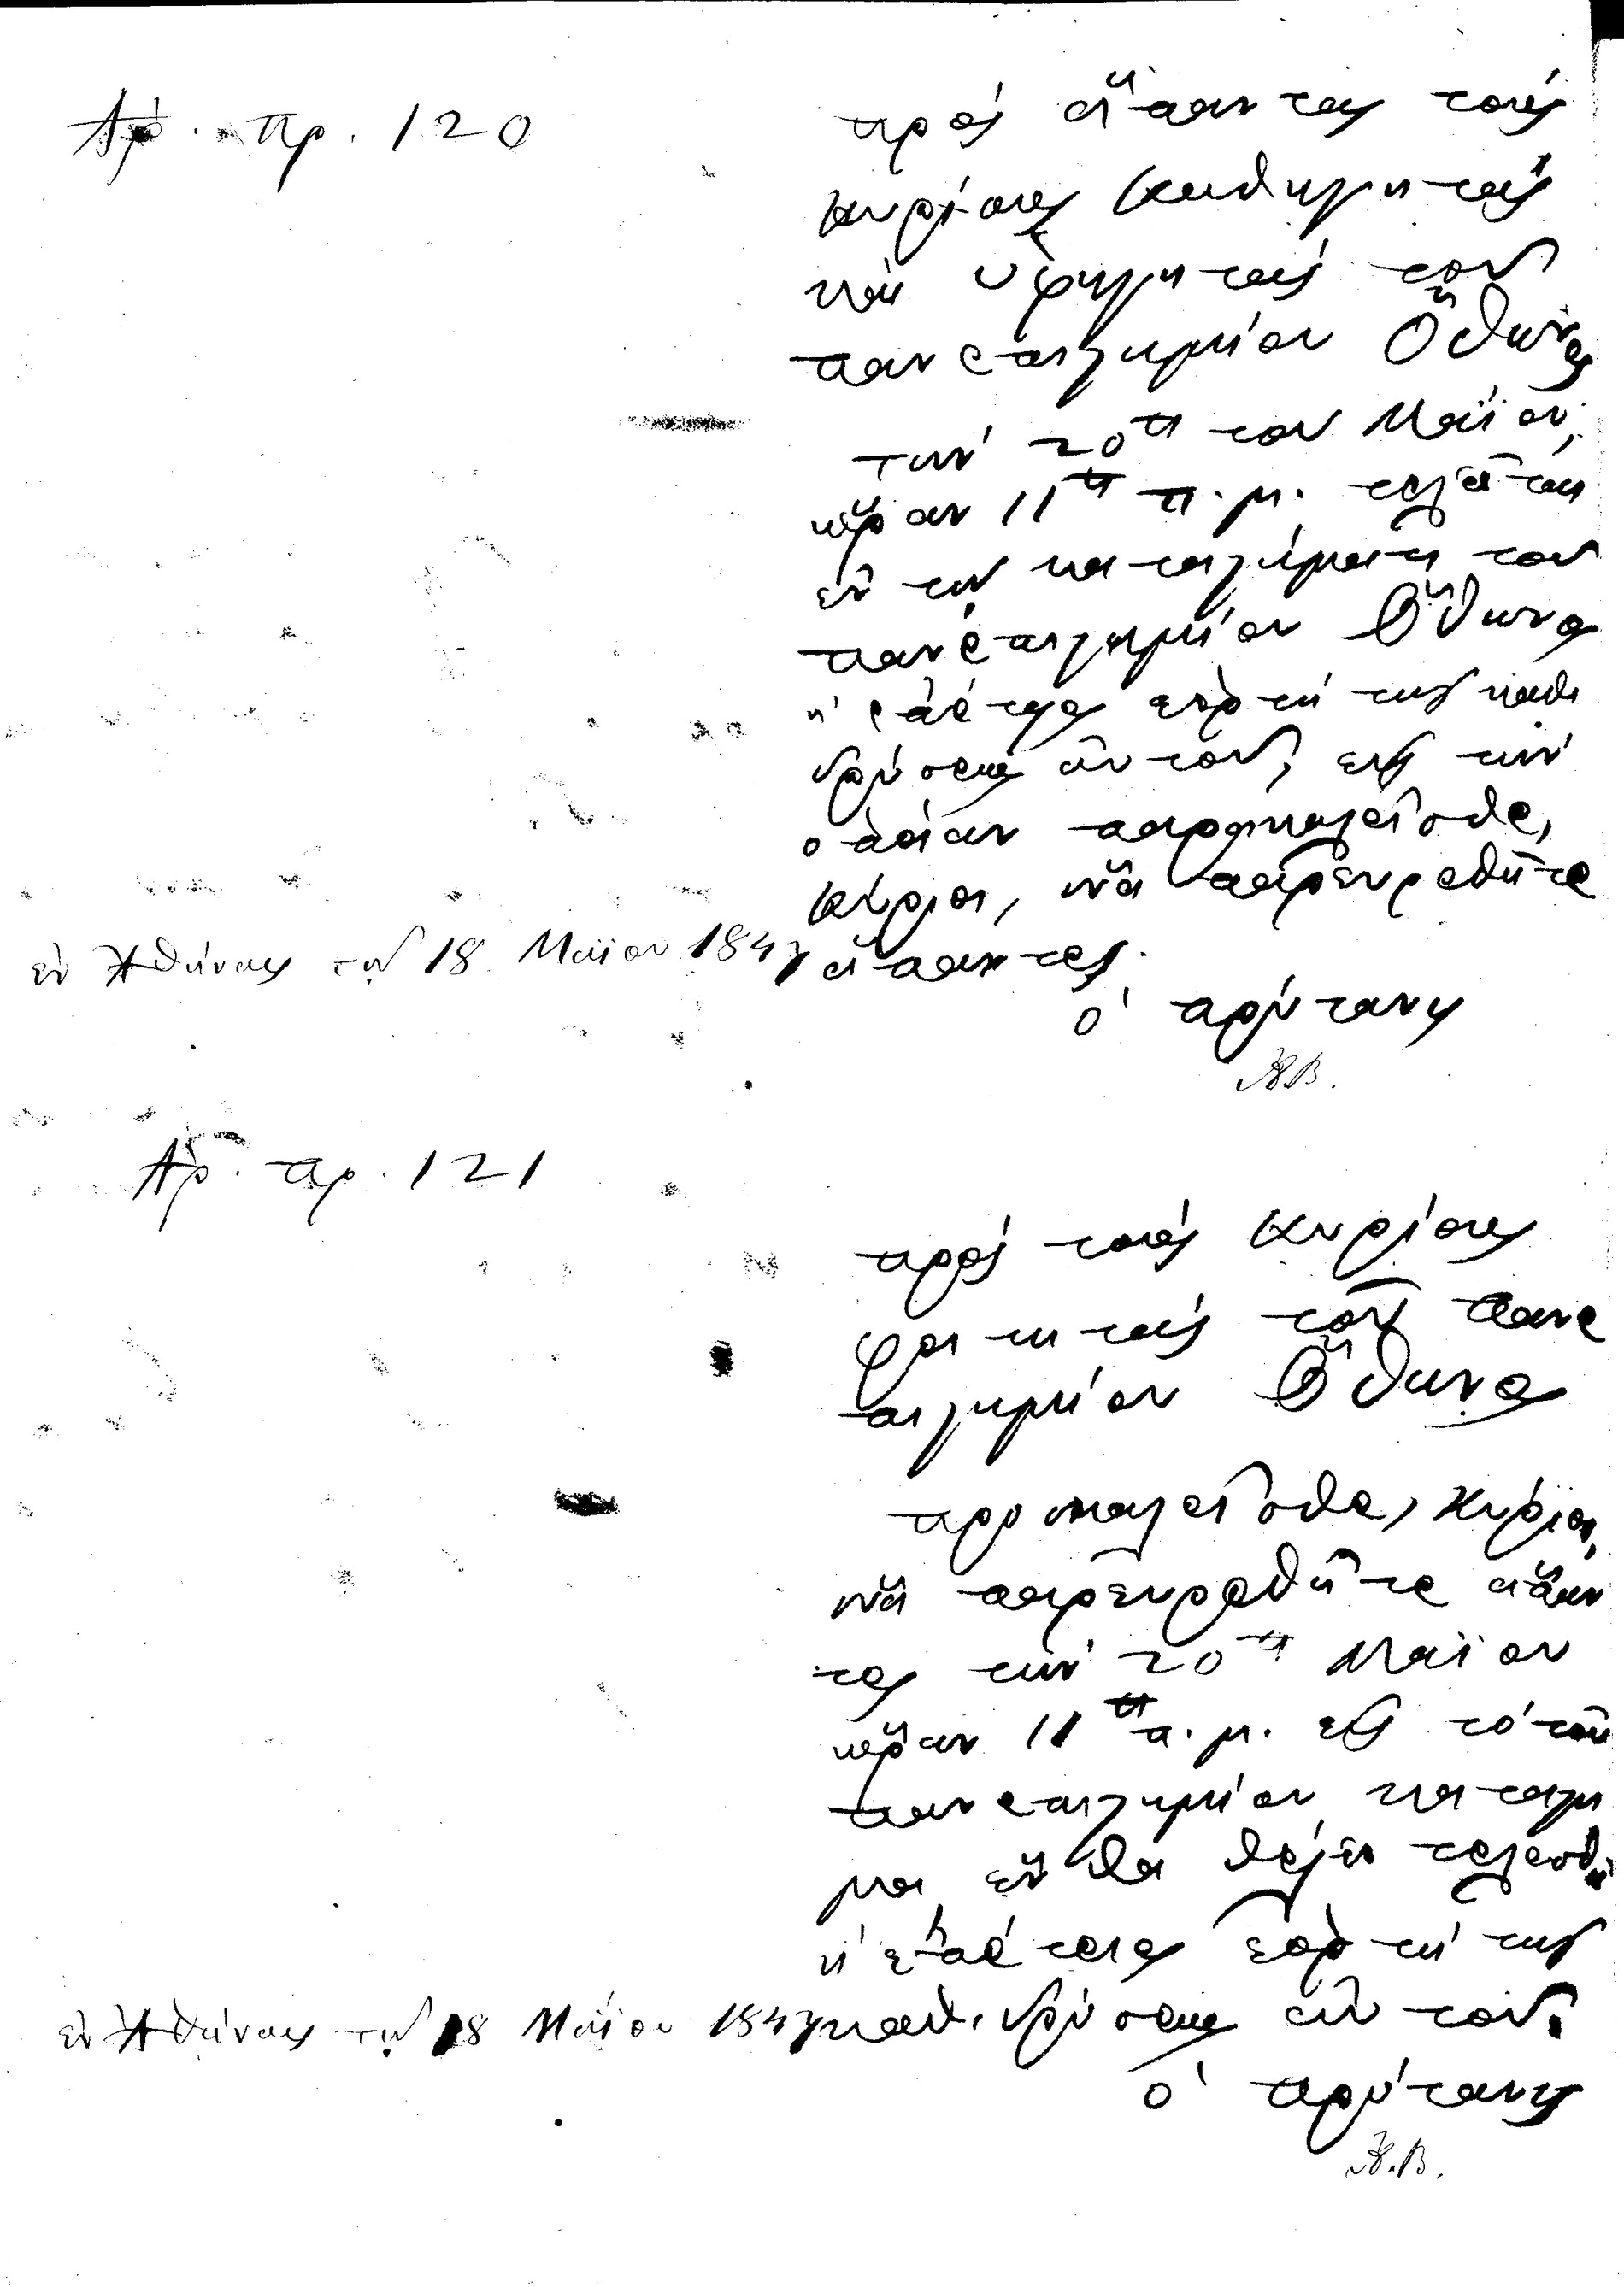 Ἀρ. πρ. 120
πρός ἅπαντας τούς
κυρίους καθηγητάς
καί ὑφηγητάς τοῦ
πανεπιστημίου Ὄθωνος
τήν 20ην τοῦ Μαΐου,
ὥραν 11ην π.μ. τελεῖται
ἐν τῷ καταστήματι τοῦ
πανεπιστημίου Ὄθωνος
ἡ ἐπέτειος ἑορτή τῆς καθι
δρύσεως αὐτοῦ, εἰς τήν
ὁποίαν προσκαλεῖσθε,
Κύριοι, νά παρευρεθῆτε
ἅπαντες.
ἐν Ἀθήναις τῇ 18 Μαΐου 1847
ὁ πρύτανις
Ἀρ. πρ. 121
πρός τούς Κυρίους
φοιτητάς τοῦ πανε
πιστημίου Ὄθωνος
προσκαλεῖσθε, Κύριοι,
νά παρευρεθῆτε ἅπαν
τες τήν 20ην Μαΐου
ὥραν 11ην π.μ. εἰς τό τοῦ
πανεπιστημίου κατάστη
μα, ἔνθα θέλει τελεσθῆ
ἡ ἐπέτειος ἑορτή τῆς
καθιδρύσεως αὐτοῦ.
ἐν Ἀθήναις τῇ 18 Μαΐου 1847
ὁ πρύτανις